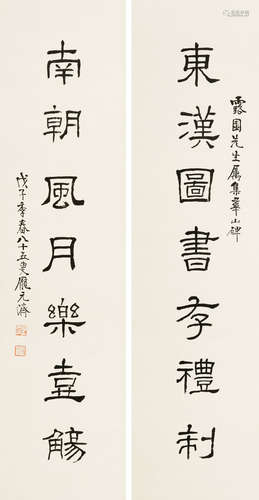 東漢圖書存禮制
露園先生屬集華山碑
南朝風月樂壺觴
戊子季春八十五叟龐元濟